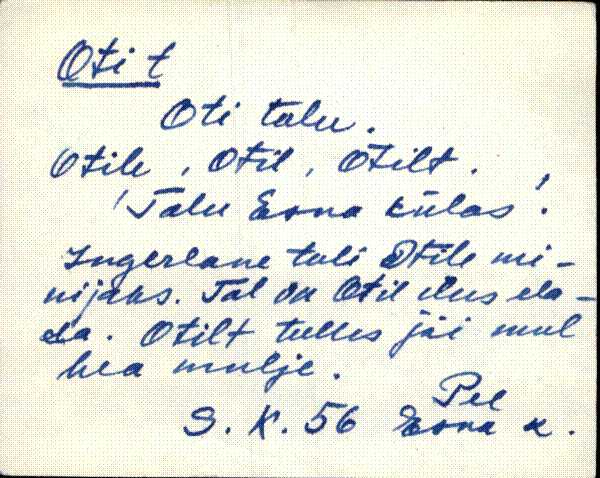 Oti t
Oti talu.
Otile, Otil, Otilt.
'Talu Esna külas'.
Ingerlane tuli Otile mi-
nijaks. Tal on Otil ilus ela-
da. Otilt tulles jäi mul
hea mulje.
Pee
S. K. 56 Esna k.